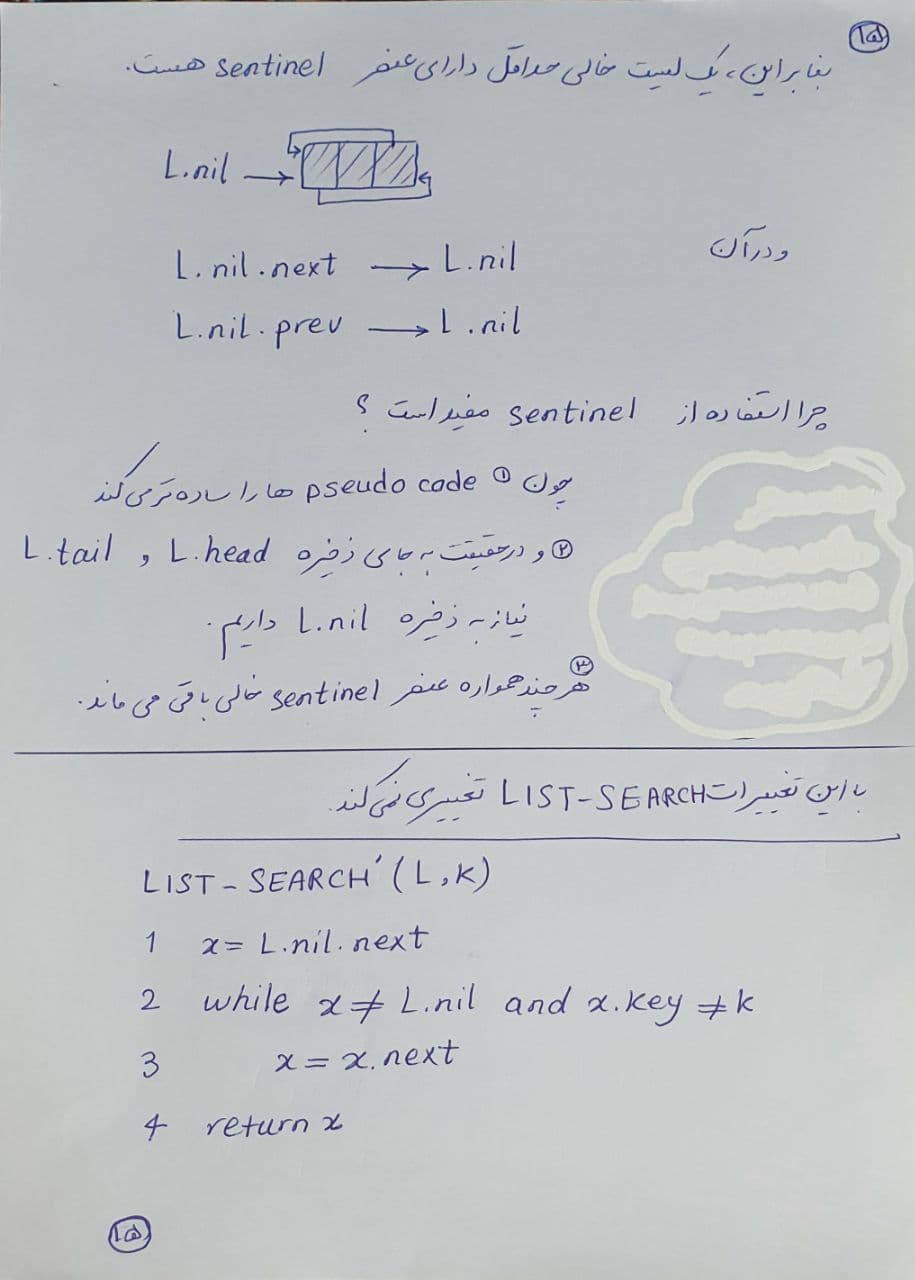 ۱۵
بنابراین، یک لیست خالی حداقل دارای عنصر sentinel هست.
L.nil →
و در آن
L.nil.next → L.nil
L.nil.prev → L.nil
چرا استفاده از sentinel مفید است؟
چون ① pseudo code ها را ساده تر می کند
② و در حقیقت به جای ذخیره L.head و L.tail
نیاز به ذخیره L.nil داریم.
③ هر چند همواره عنصر sentinel خالی باقی می ماند.
با این تغییرات LIST-SEARCH تغییری نمی کند.
LIST-SEARCH′(L,k)
1 x = L.nil.next
2 while x ≠ L.nil and x.key ≠ k
3 x = x.next
4 return x
۱۵